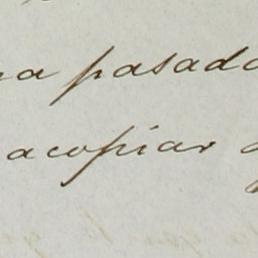 na pasado
acopiar